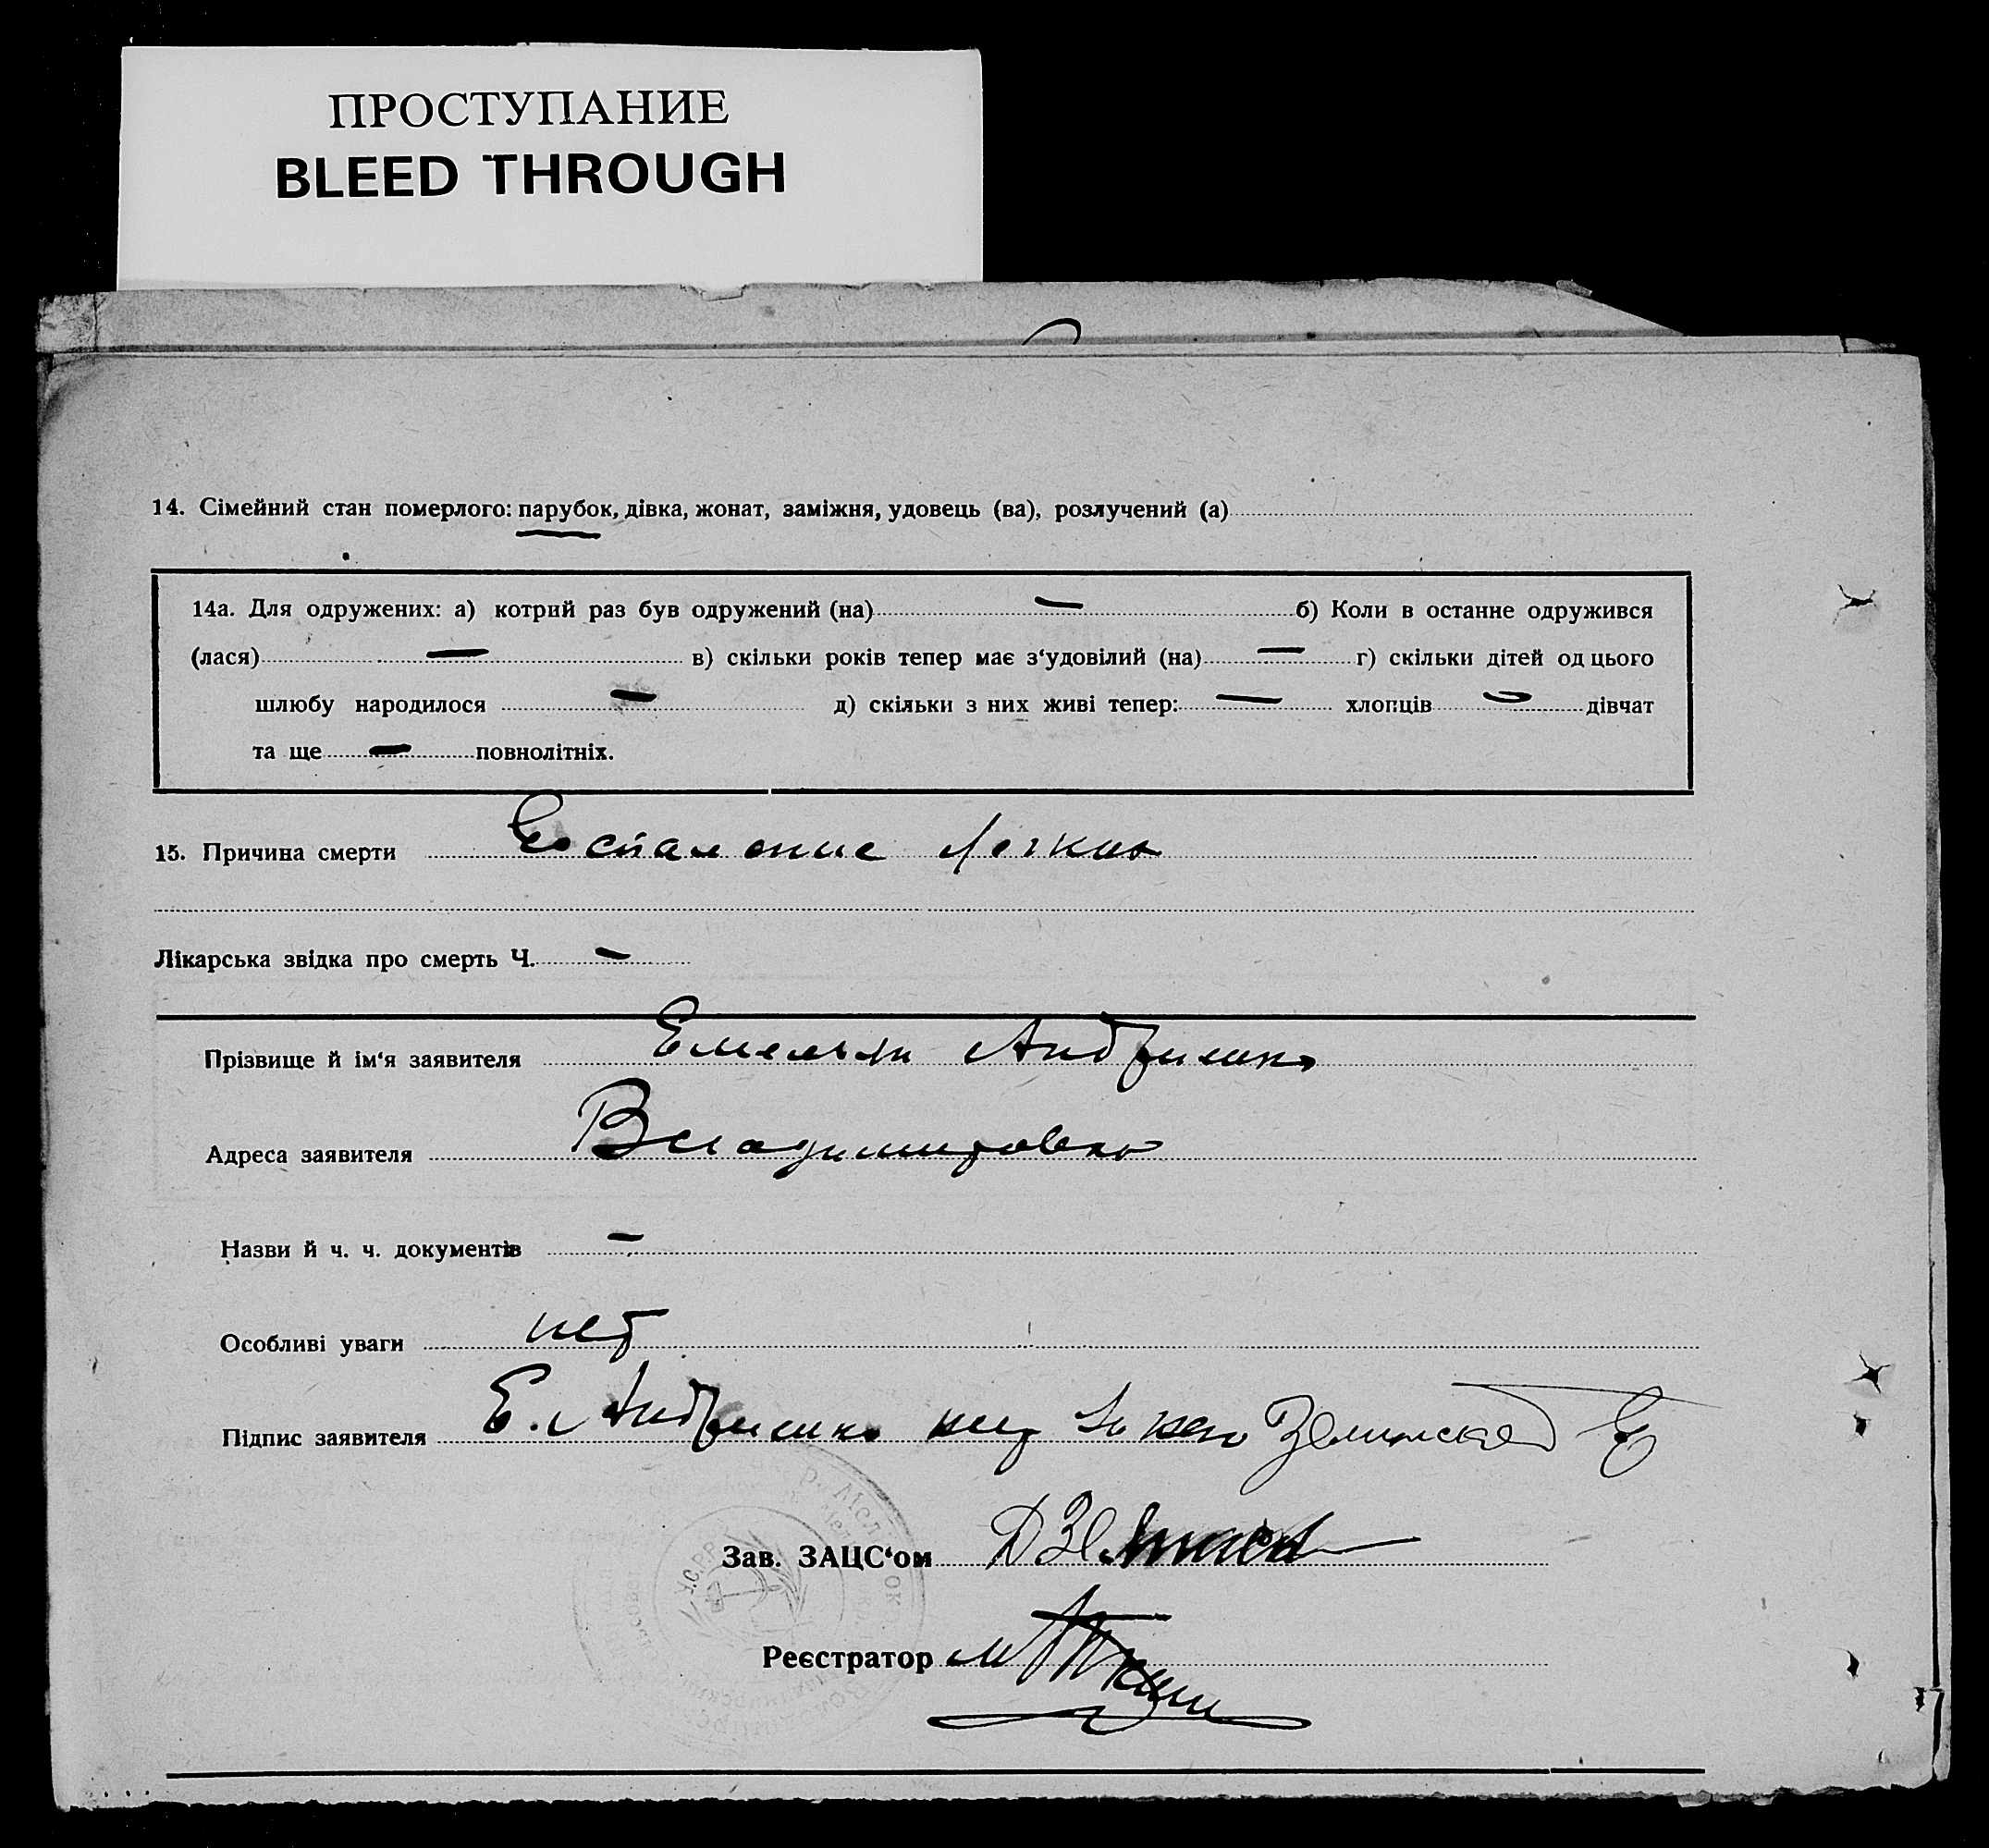 ПРОСТУПАНИЕ
BLEED THROUGH
14. Сімейний стан померлого: парубок, дівка, жонат, заміжня, удовець (ва), розлучений (а)
14а. Для одружених: а) котрий раз був одружений (на) — б) Коли в останне одружився
(лася) — в) скільки років тепер має з'удовілий (на) — г) скільки дітей од цього
шлюбу народилося — д) скільки з них живі тепер: — хлопців — дівчат
та ще — повнолітніх.
15. Причина смерти Воспаление Легких
Лікарська звідка про смерть Ч. —
Прізвище й ім'я заявителя Емельян Андриенко
Адреса заявителя Владимировка
Назви й ч. ч. документів —
Особливі уваги нет
Підпис заявителя Е. Андриенко
У.С.Р.Р.
Зав. ЗАЦС'ом
Реєстратор